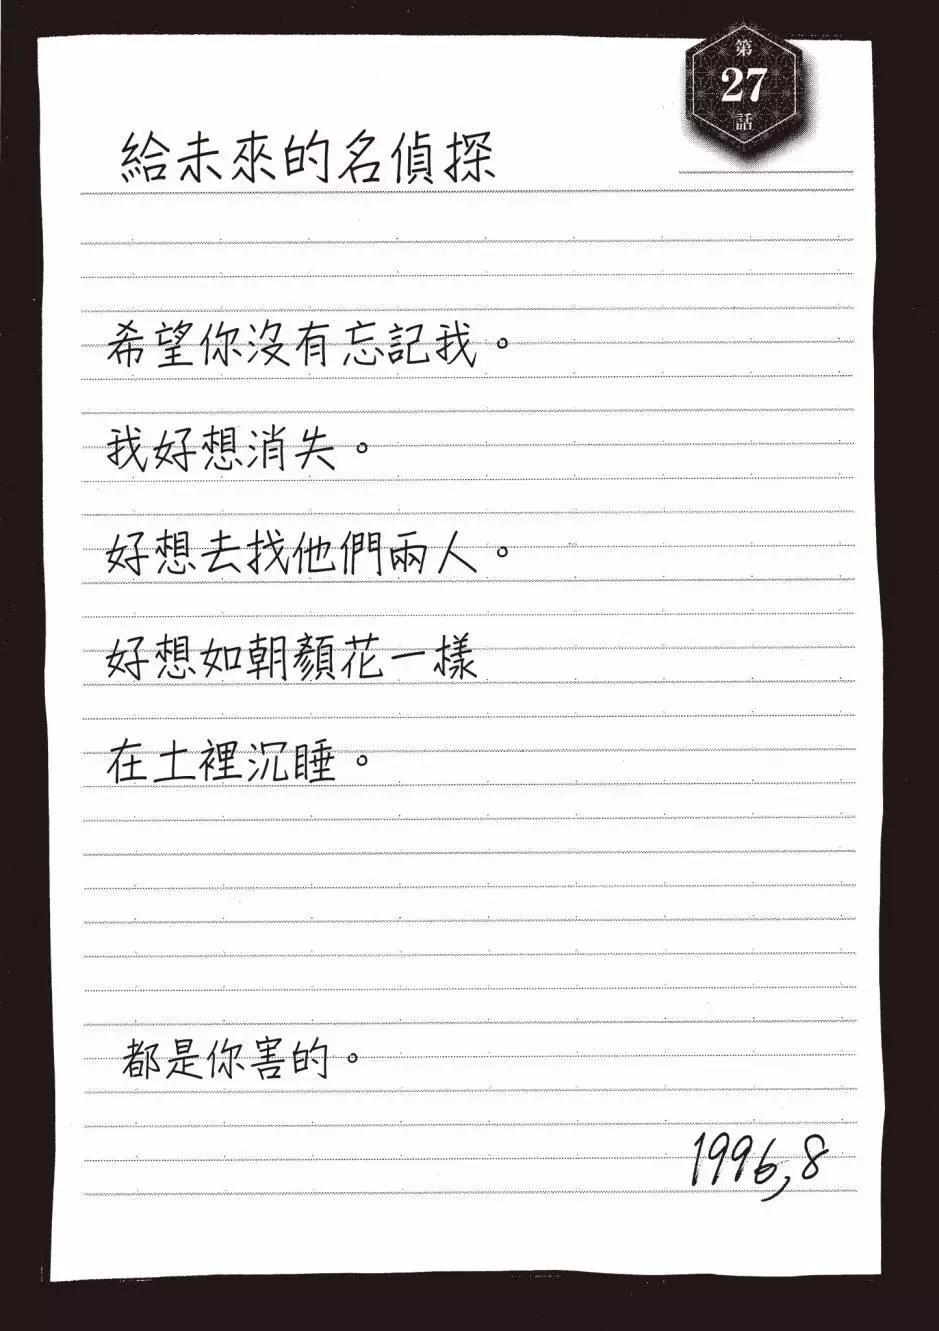 第
27
話
給未來的名偵探
希望你沒有忘記我。
我好想消失。
好想去找他們兩人。
好想如朝顏花一樣
在土裡沉睡。
都是你害的。
1996,8